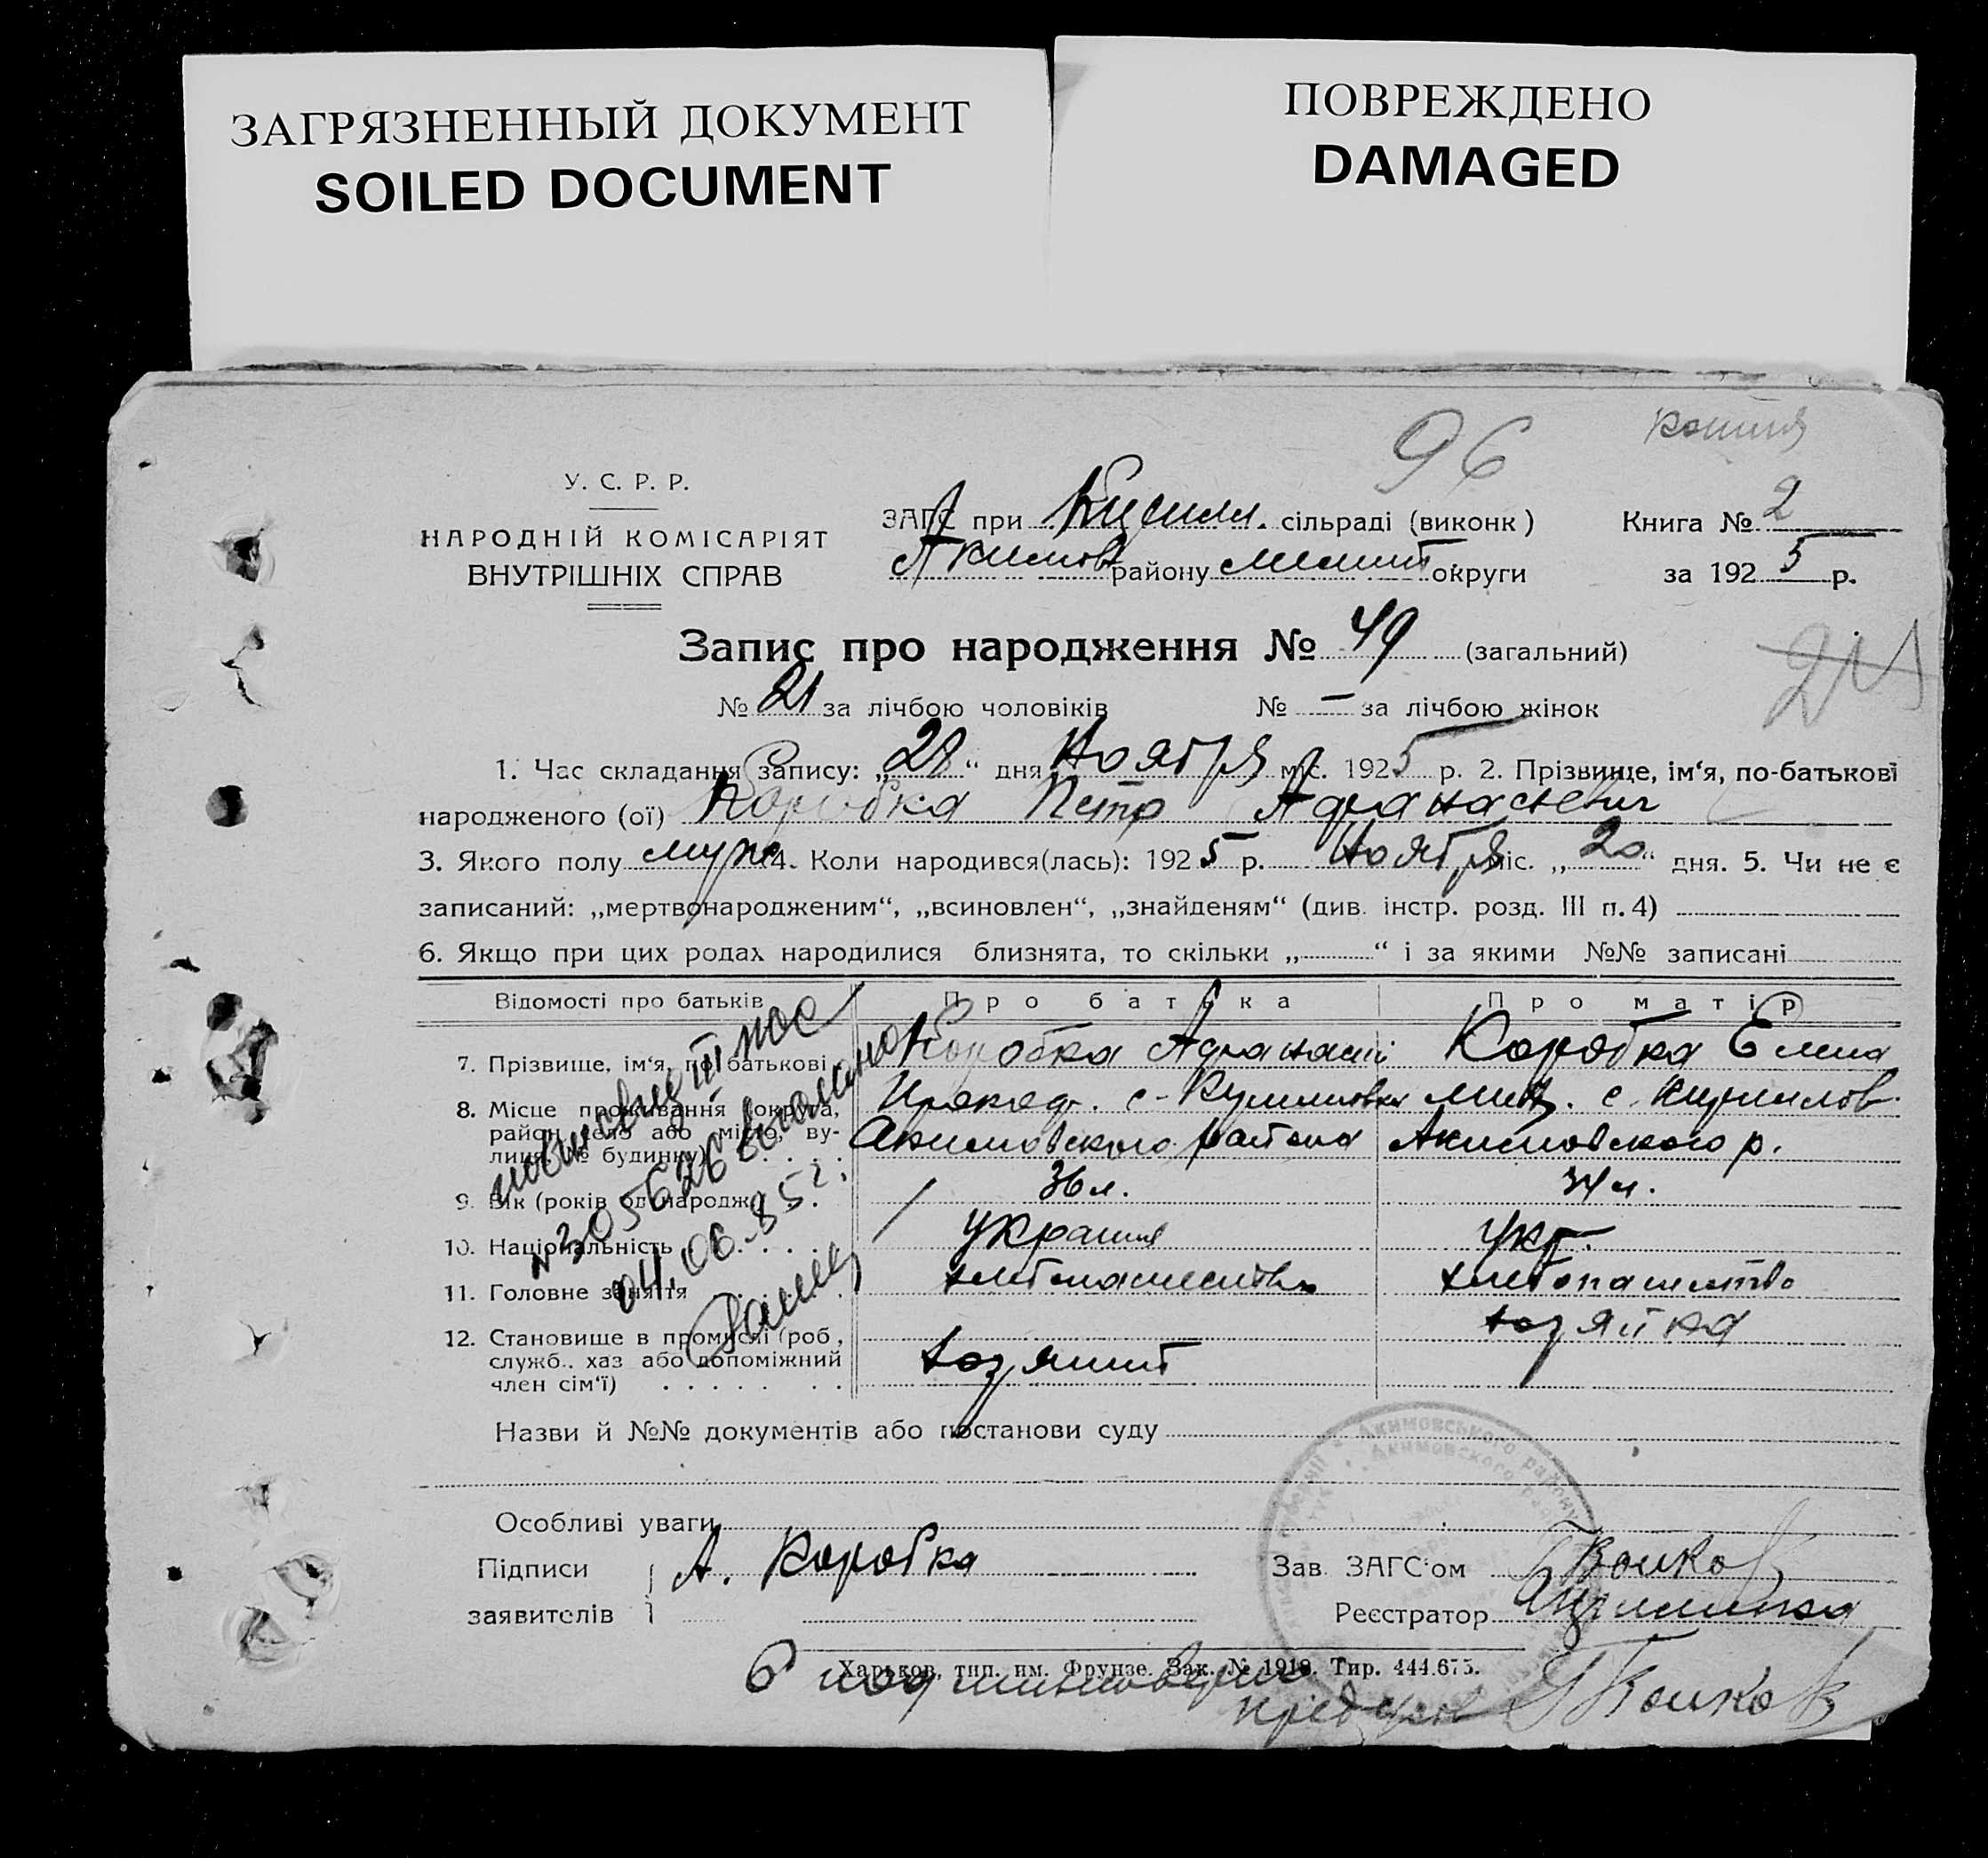 ЗАГРЯЗНЕННЫЙ ДОКУМЕНТ
SOILED DOCUMENT
ПОВРЕЖДЕНО
DAMAGED
96
копия
У. С. Р. Р.
НАРОДНІЙ КОМІСАРІЯТ
ВНУТРІШНІХ СПРАВ
ЗАГС при сільраді (виконк)
Акимов району Мелит округи
Книга № 2
за 1925 р.
Запис про народження № 49 (загальний)
№ 21 за лічбою чоловіків № – за лічбою жінок
1. Час складання запису: „28“ дня Ноября міс. 1925 р. 2. Прізвище, ім‘я, по-батькові
народженого (ої) Коробка Петр Афанасьевич
3. Якого полу муж 4. Коли народився(лась): 1925 р. Ноября міс. „20“ дня. 5. Чи не є
записаний: „мертвонародженим“, „всиновлен“, „знайденям“ (див. інстр. розд. III п. 4)
6. Якщо при цих родах народилися близнята, то скільки „ “ і за якими №№ записані
Відомості про батьків Про батька Про матір
7. Прізвище, ім‘я, по батькові Коробка Афанасий Коробка Елена
8. Місце проживання (округа, с. с.
район, село або місто, ву- Акимовского района Акимовского р.
лиця, № будинку)
9. Вік (років од народж.) 36 л. 34 л.
10. Національність Украин Укр.
11. Головне заняття хлебопашество хлебопашество
12. Становище в промислі (роб., хозяйка
служб., хаз або допоміжний хозяин
член сім‘ї)
04.06.85 г.
Назви й №№ документів або постанови суду
Особливі уваги
Підписи А. Коробка Зав ЗАГС‘ом
заявителів Реєстратор
Харьков, тип. им. Фрунзе. Зак. № 1918. Тир. 444.675.
Акимовського району
Акимовского